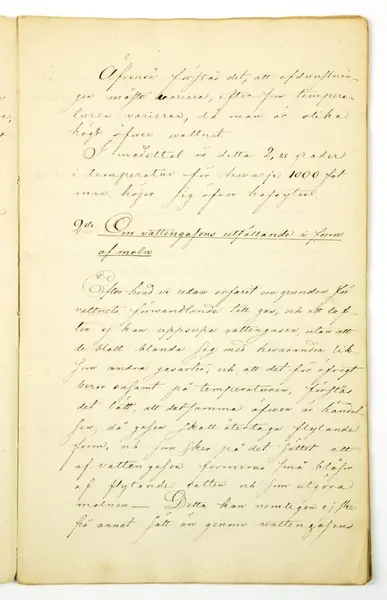 Äfvenså förstås det, att afdunstnin-
gen måste variera, efter som tempera-
turen varierar, då man är olika
högt öfver wattnet.
I medeltal är detta 2,25 grader
i temperatur för hvarje 1000 fot
man höjer sig öfver hafsytan.
2do Om vattengasens utfällande i form
af moln
Efter hvad vi redan erfarit om grunden för
vattnets förwandlande till gas, och att luf-
ten ej kan uppsupa vattengasen utan att
de blott blanda sig med hvarandra lik-
som andra gasarter, och att det för öfrigt
beror ensamt på temperaturen, förstås
det lätt, att detsamma äfven är händel-
sen, då gasen skall återtaga flytande
form, nå som sker på det sättet att
af vattengasen formeras små blåsor
af flytande vatten och som utgöra
molnen — Detta kan nemligen ej ske
på annat sätt än genom wattengasens